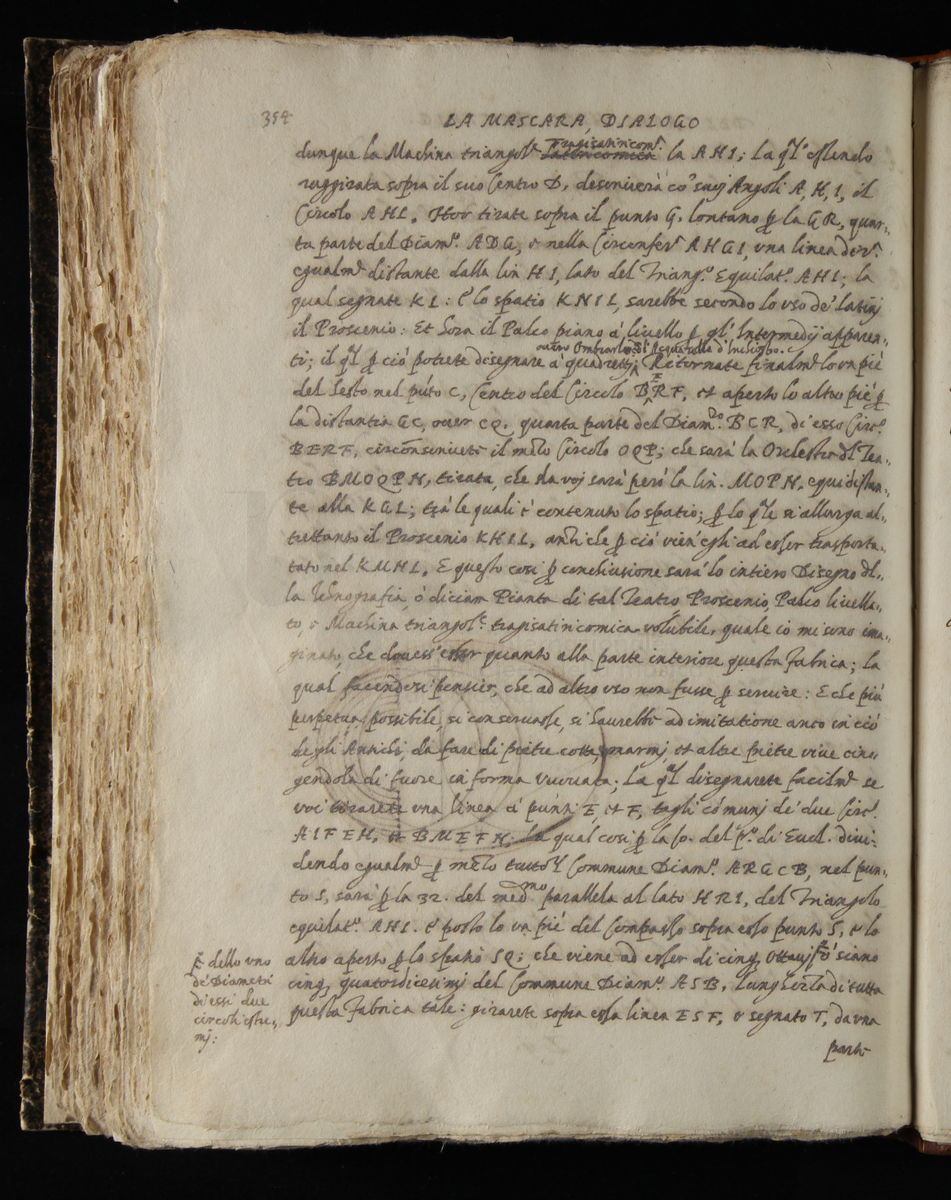 354
LA MASCARA, DIALOGO
dunque la Machina triangol.e tragisatiricom.a la AHI; la q.l essendo
raggirata sopra il suo Centro D, descriverà co' suoj Angoli A, H, I, il
Circolo AHI. Hor tirate sopra il punto G, lontano ꝑ la GR, quar-
ta parte del Diam.o ADG, e nella Circonfer.a AHGI, vna linea
egualm.e distante dalla lin HI, lato del Triang.o Equilat.o AHI; la
qual segnate KL: e lo spatio KNIL, sarebbe secondo lo vso de' latinj
il Proscenio: Et hora il Palco piano à livello ꝑ gl' Intermedij apparen-
ti; il q.l ꝑ ciò potrete disegnare à quadretti; Ritornate finalm.e lo un piè
del Sesto nel pũto C, Centro del Circolo BERF, et aperto lo altro piè ꝑ
la distantia GC, over CQ, quarta parte del Diam.o BCR, di esso Circ.o
BERF, circonscrivete il m.o Circolo OQP; che sarà la Orchestra dl Tea-
tro BMOQPN, tirata, che da voj sarà però la lin. MOPN, equidistan-
te alla KGL; trà le quali è contenuto lo spatio; ꝑ lo q.le si allarga al-
trettanto il Proscenio KHIL, anzi che ꝑ ciò vien' egli ad esser trasporta-
tato nel KMHL. E questo cosi ꝑ conclusione sarà lo intiero Disegno dl-
la Icnografia, ò diciam Pianta di tal Teatro Proscenio, Palco livella-
to, e Machina triangol.e tragisatiricomica volubile, quale io mi sono ima-
ginato, che dovess' esser quanto alla parte interiore questa fabrica; la
qual facendosi pensier, che ad altro vso non fusse ꝑ servire: E che più
perpetua possibile, si conservasse, si haurebbe ad imitatione anco in ciò
degli Antichi, da fare di pietre cotte, marmj, et altre pietre vive cin-
gendola di fuore in forma; La q.l disegnarete facilm.e se
voi tirarete vna linea à punti E, et F, tagli cómunj de' due Circ.i
AIFEH, et BMEFN; la qual cosi ꝑ la 10. del p.o di Eucl. divi-
dendo egualm.e ꝑ mezo tutto'l Commune Diam.o ARGCB, nel pun-
to S, sarà ꝑ la 32. del med.mo parallela al lato HRI, del Triangolo
equilat.o AHI. E posto lo un piè del Compasso sopra esso punto S, e lo
altro aperto ꝑ lo spatio SQ; che viene ad esser di cinq, ottavi, ò siano
cinq, quatordicesimj del Commune Diam.o ASB, lunghezza di tutta
questa fabrica tale: girarete sopra essa linea ESF, e segnato T, da vna
parte
ꝑ dello vno
de' Diametri
di essi due
circoli estre-
mj: